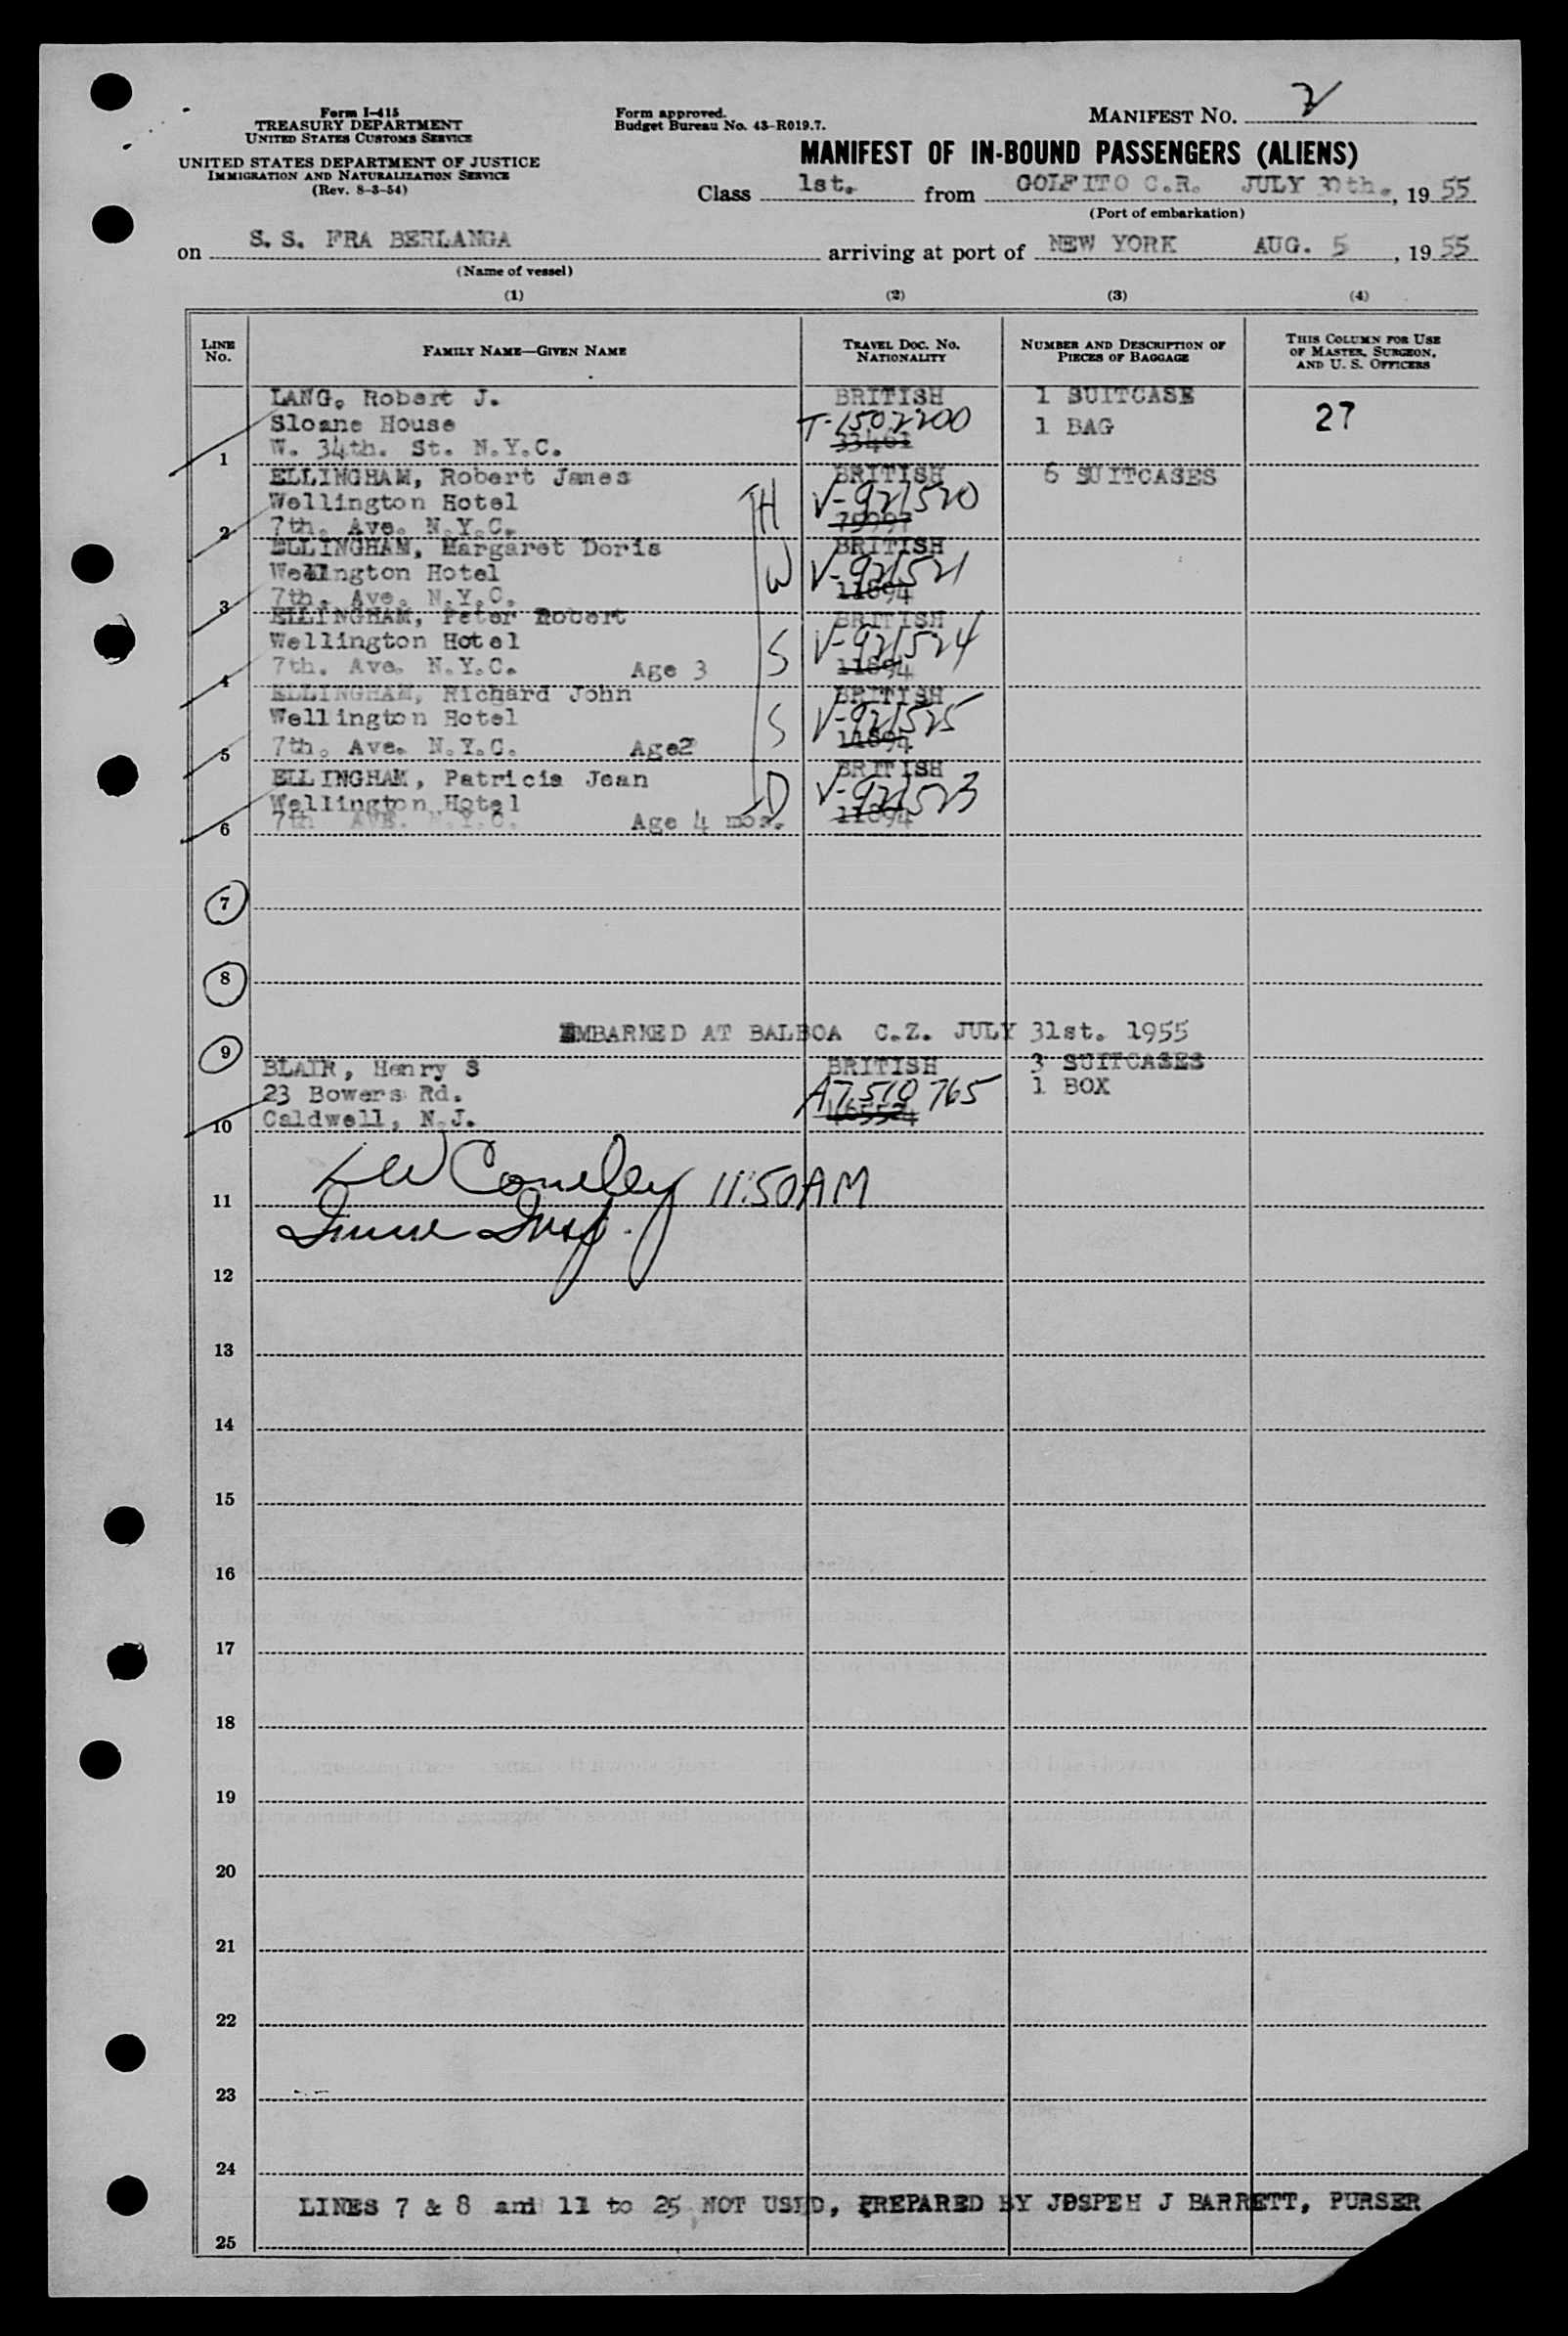 Form I-415
TREASURY DEPARTMENT
UNITED STATES CUSTOMS SERVICE
UNITED STATES DEPARTMENT OF JUSTICE
IMMIGRATION AND NATURALIZATION SERVICE
(Rev. 8-3-54)
Form approved.
Budget Bureau No. 43-R019.7.
MANIFEST NO. 2
MANIFEST OF IN-BOUND PASSENGERS (ALIENS)
Class 1st. from GOLFITO C.R. JULY 30th., 19 55
(Port of embarkation)
on S. S. FRA BERLANGA arriving at port of NEW YORK AUG. 5, 19 55
(Name of vessel)
(1) (2) (3) (4)
LINE No. FAMILY NAME—GIVEN NAME TRAVEL DOC. NO. NATIONALITY NUMBER AND DESCRIPTION OF PIECES OF BAGGAGE THIS COLUMN FOR USE OF MASTER, SURGEON, AND U. S. OFFICERS
LANG, Robert J. BRITISH 1 SUITCASE
Sloane House T-1502200 1 BAG 27
1 W. 34th. St. N.Y.C. 33461
ELLINGHAM, Robert James BRITISH 6 SUITCASES
Wellington Hotel H V-921520
2 7th. Ave. N.Y.C. 75997
ELLINGHAM, Margaret Doris BRITISH
Wellington Hotel W V-921521
3 7th. Ave. N.Y.C. 11894
ELLINGHAM, Peter Robert BRITISH
Wellington Hotel S V-921524
4 7th. Ave. N.Y.C. Age 3 11894
ELLINGHAM, Richard John BRITISH
Wellington Hotel S V-921525
5 7th. Ave. N.Y.C. Age2 11894
ELLINGHAM, Patricia Jean BRITISH
Wellington Hotel D V-921523
6 7th AVE. N.Y.C. Age 4 mos. 11894
7
8
EMBARKED AT BALBOA C.Z. JULY 31st. 1955
9
BLAIR, Henry S BRITISH 3 SUITCASES
23 Bowers Rd. A7 510 765 1 BOX
10 Caldwell, N.J.
11 11:50AM
Imm Insp.
12
13
14
15
16
17
18
19
20
21
22
23
24
LINES 7 & 8 and 11 to 25 NOT USED, PREPARED BY JOSPEH J BARRETT, PURSER
25